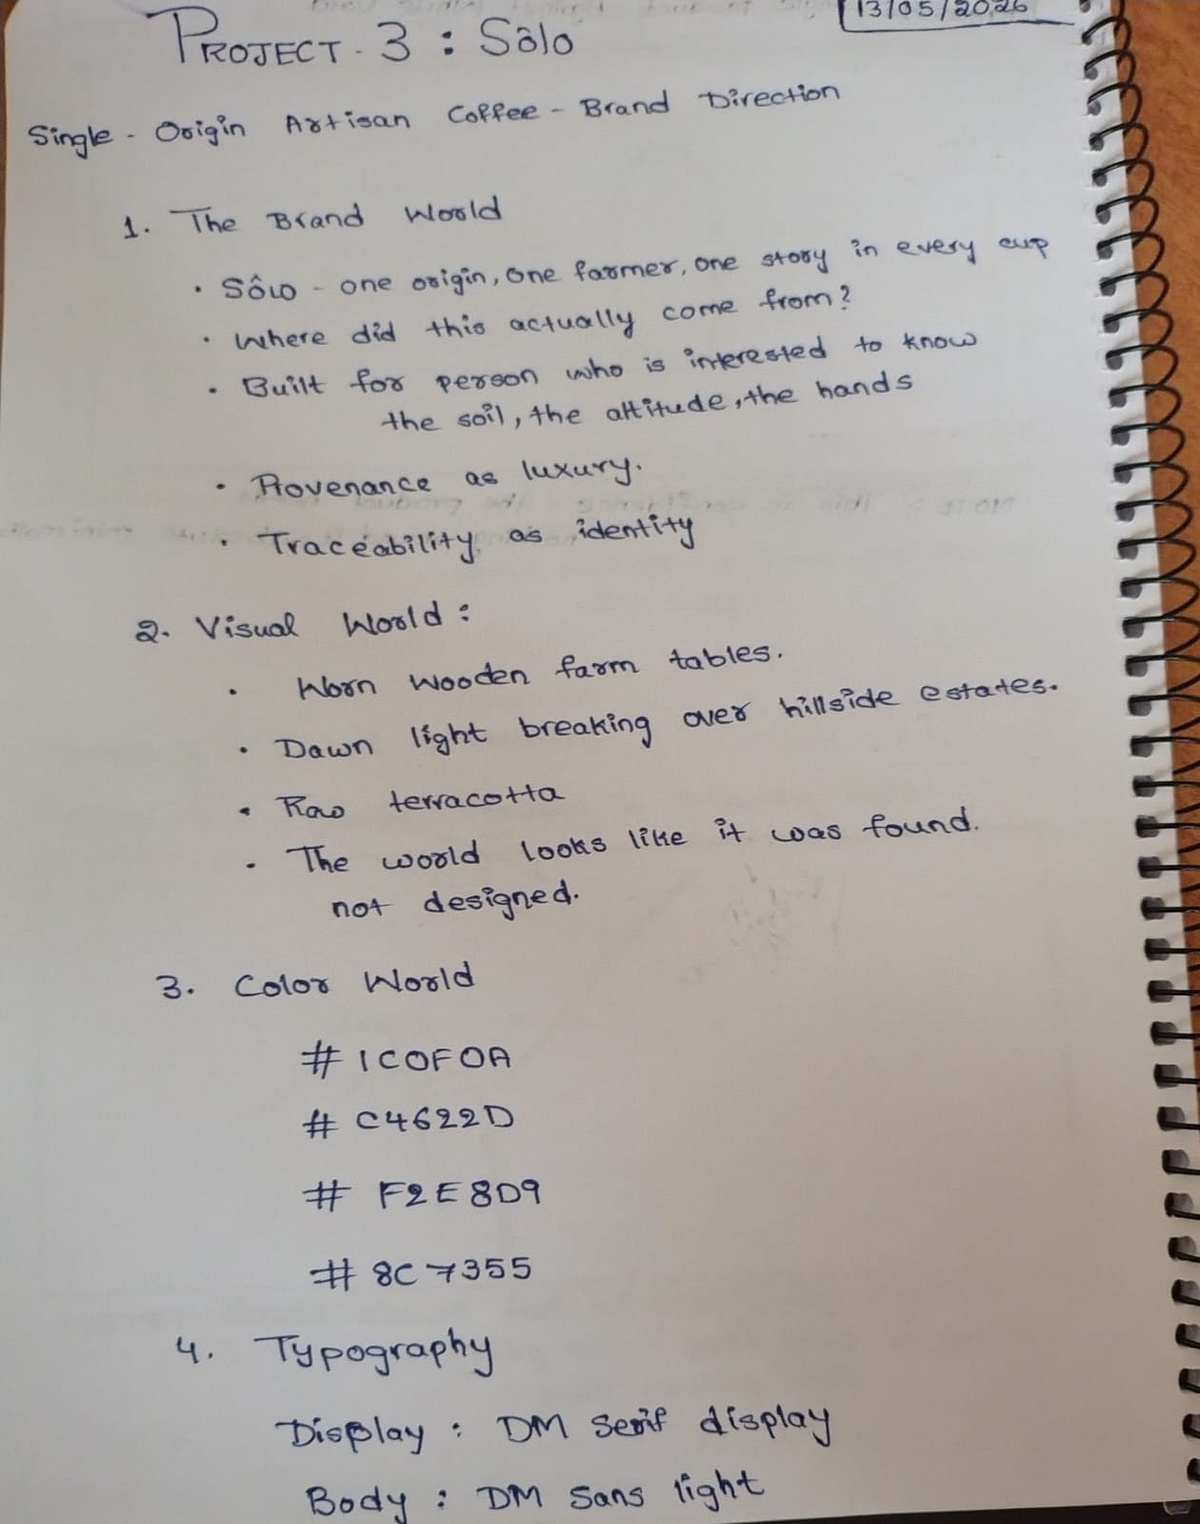 13/05/2026
PROJECT - 3 : Sôlo
Single - Origin Artisan Coffee - Brand Direction
1. The Brand World
• Sôlo - one origin, one farmer, one story in every cup
• Where did this actually come from?
• Built for person who is interested to know
the soil, the altitude, the hands
• Provenance as luxury.
• Traceability as identity
2. Visual World :
• Worn wooden farm tables.
• Dawn light breaking over hillside estates.
• Raw terracotta
• The world looks like it was found.
not designed.
3. Color World
# 1C0F0A
# C4622D
# F2E8D9
# 8C7355
4. Typography
Display : DM Serif display
Body : DM Sans light